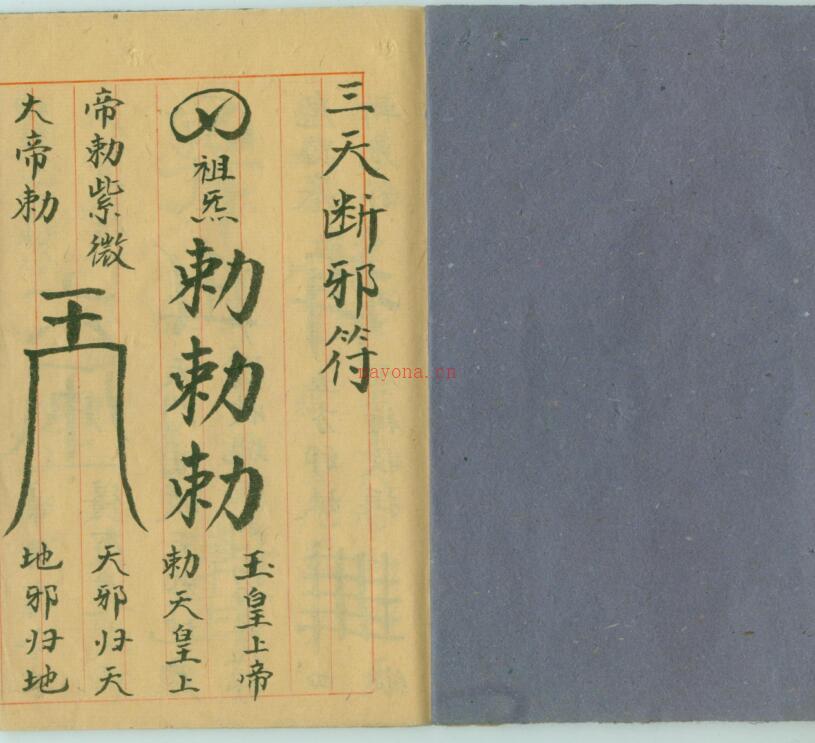 三天断邪符
祖炁
勅勅勅
玉皇上帝
勅天皇上
帝勅紫微
大帝勅
天邪归天
地邪归地
nayona.cn